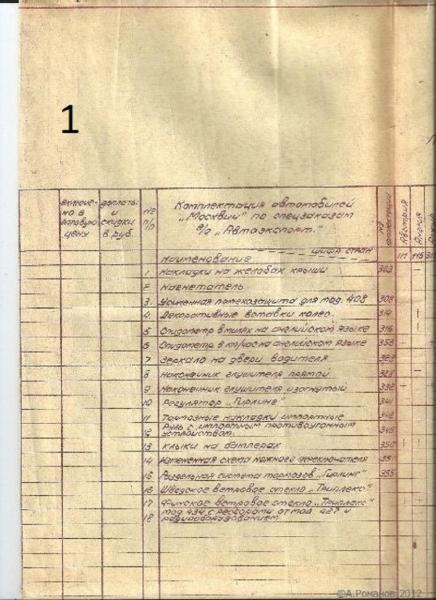 1
включе- доплаты №№ Комплектация автомобилей
но в и п/п „Москвич" по спецзаказам
базовую скидки в/о „Автоэкспорт."
цену в руб.
шифр стран
Наименование 111 115
Австрия
Англия
1 Накладки на желобах крыши 303
2 Нагнетатель
3. Усиленная помехозащита для мод. 408 308
4. Декоративные вставки колес. 314
5 Спидометр в милях на английском языке 316
6 Спидометр в км/час на английском языке 358
7 Зеркало на двери водителя 323
8 Наконечник глушителя прямой 328
9 Наконечник глушителя изогнутый 332
10 Регулятор „Гирлинг" 341
11 Тормозные накладки импортные 342
12 Руль с импортным противоугонным устройством. 345
13 Клыки на бамперах 350
14 Измененная схема ножного переключателя 351
15 Раздельная система тормозов „Гирлинг" 355
16 Шведское ветровое стекло „Триплекс"
17 Финское ветровое стекло „Триплекс"
18 мод 434 с рессорами от мод 427 и
радиооборудованием.
©А.Романов 2012